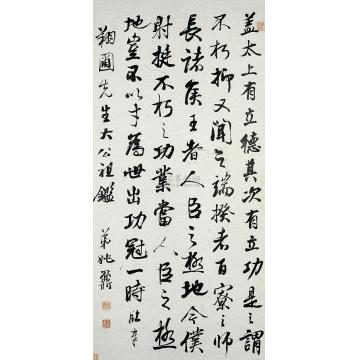 盖太上有立德其次有立功是之謂
不朽抑又聞之端揆者百寮之师
長诸侯王者人臣之極地今僕
射挺不朽之功業當人臣之極
地豈不以才為世出功冠一時
鞠圃先生大公祖鑑
弟姚鼐